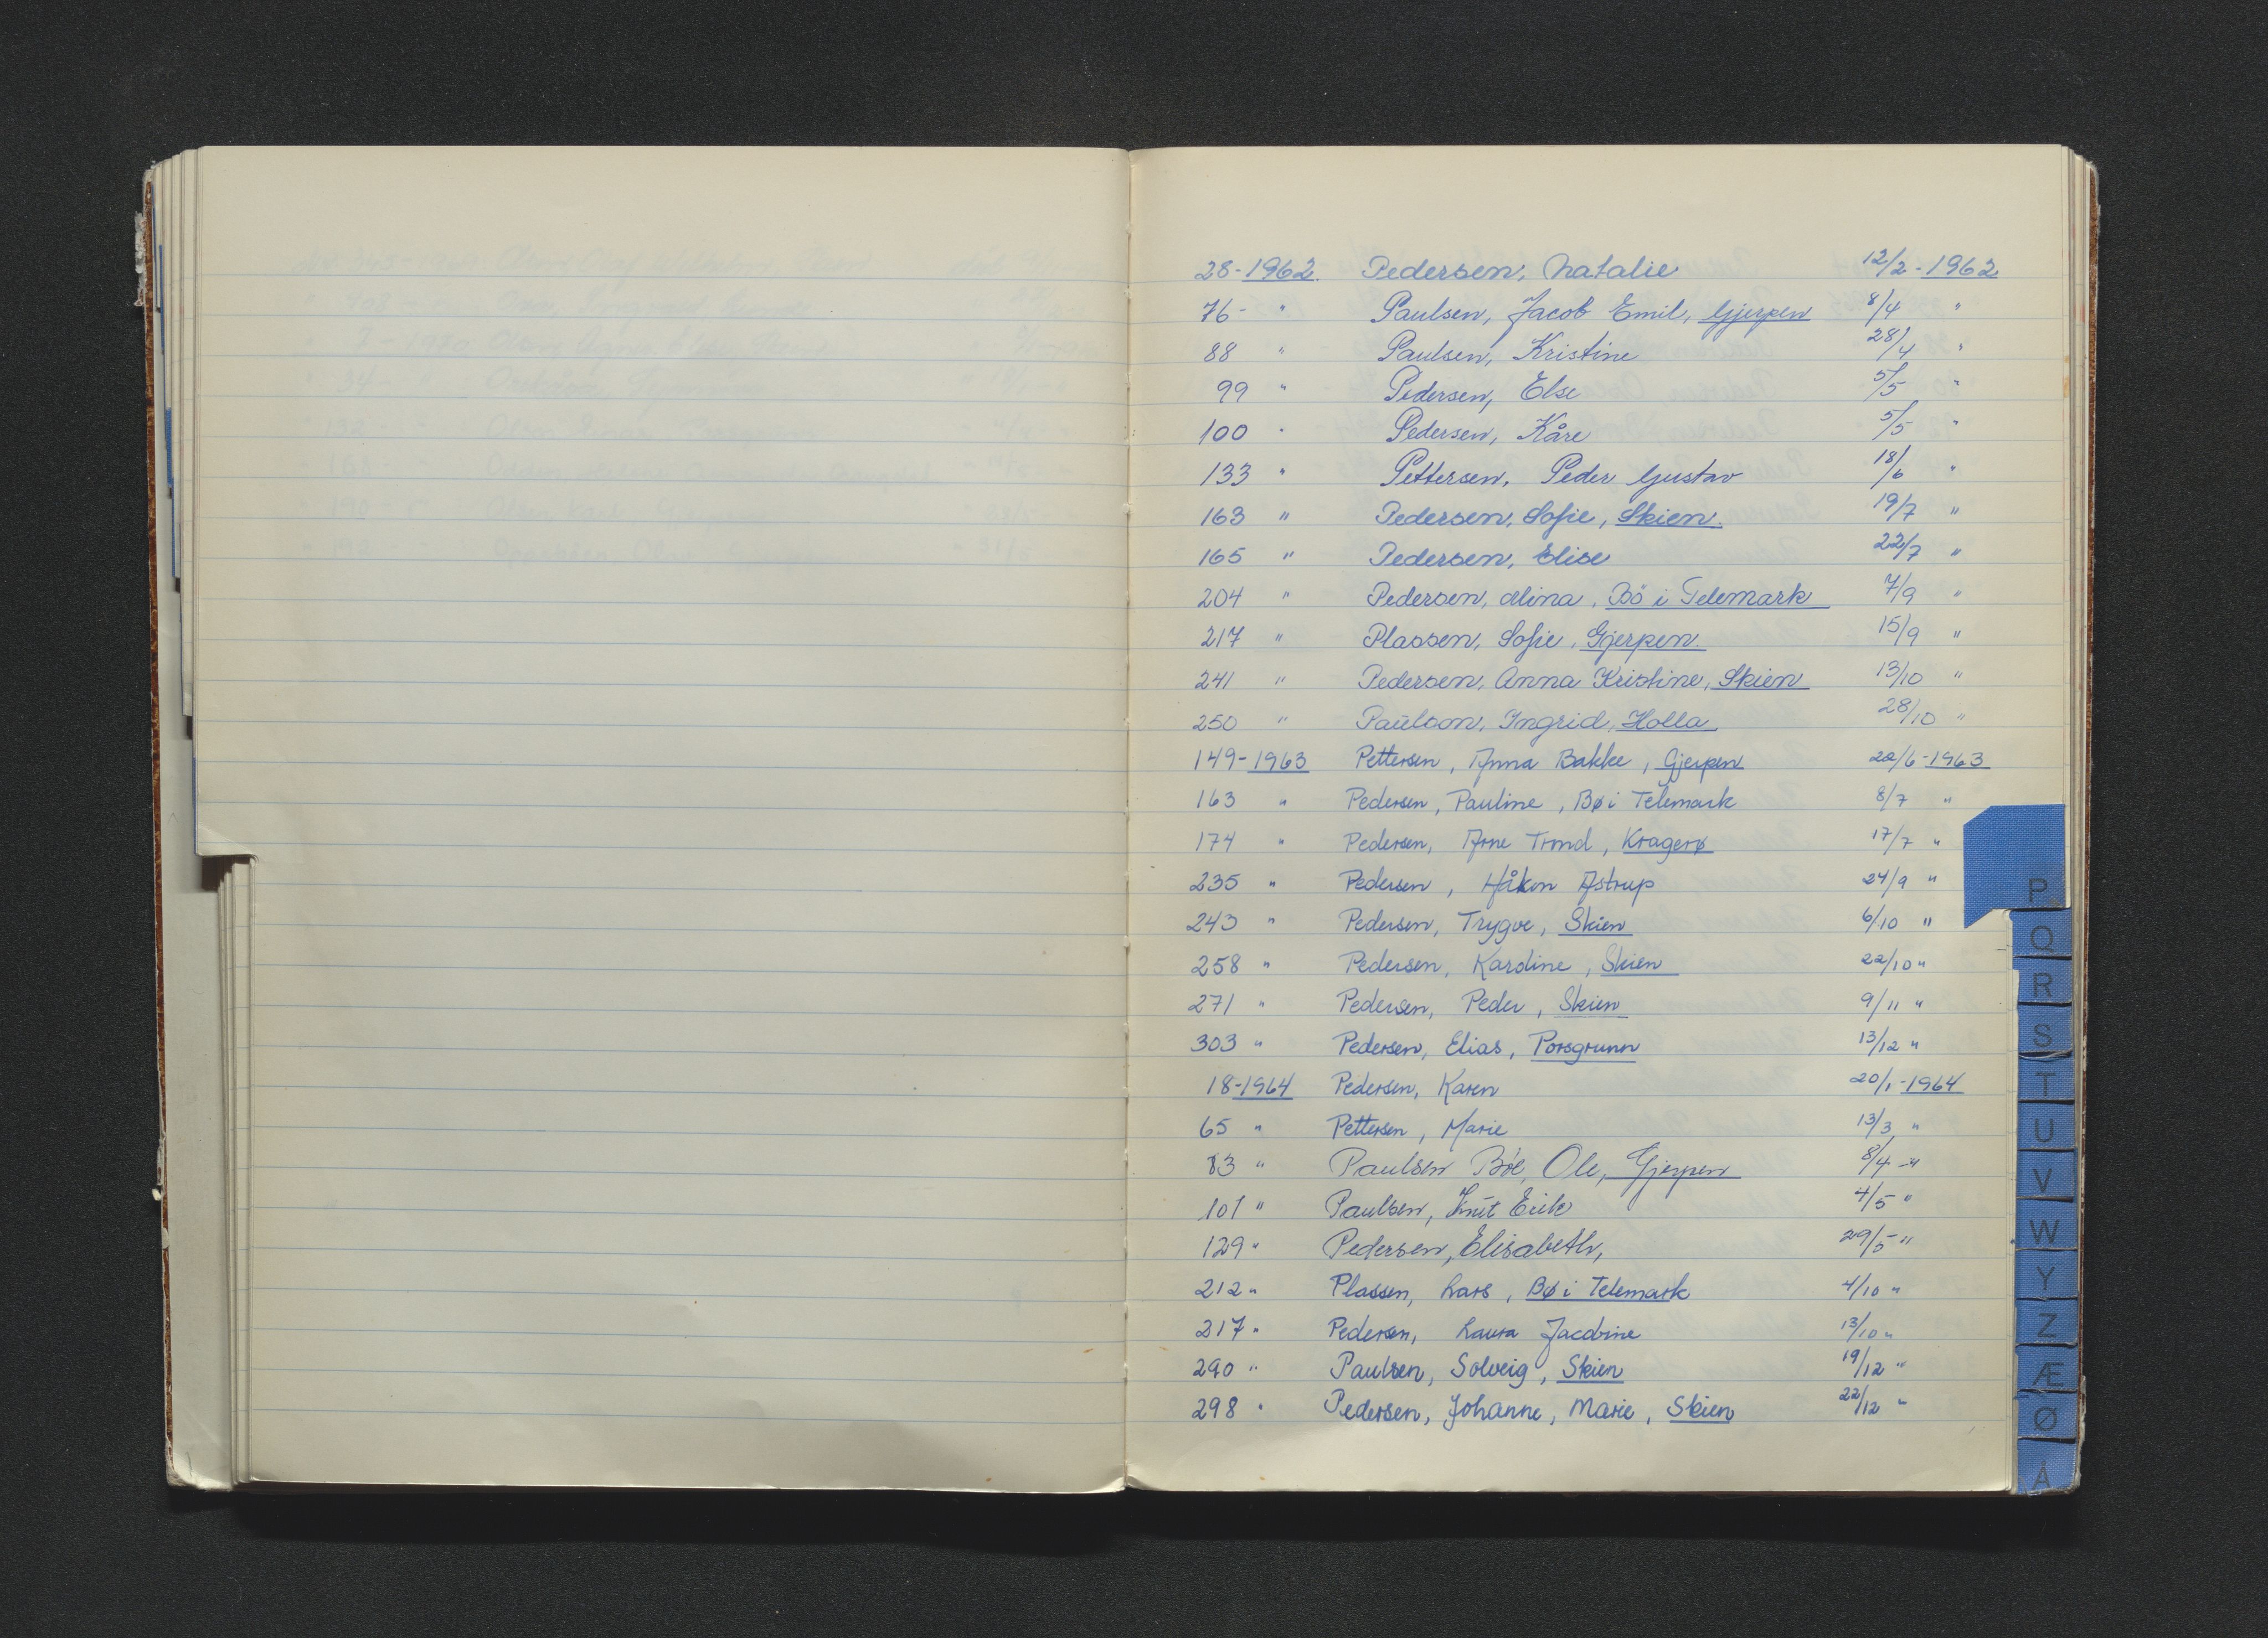 28-1962. Pedersen, Natalie 12/2-1962
76- " Paulsen, Jacob Emil, Gjerpen 8/4 "
88 " Paulsen, Kristine 28/4 "
99 " Pedersen, Else 5/5 "
100 " Pedersen, Kåre 5/5 "
133 " Pettersen, Peder Gustav 18/6 "
163 " Pedersen, Sofie, Skien. 19/7 "
165 " Pedersen, Elise 22/7 "
204 " Pedersen, Alina, Bö i Telemark 7/9 "
217 " Plassen, Sofie, Gjerpen. 15/9 "
241 " Pedersen, Anna Kristine, Skien 13/10 "
250 " Paulson, Ingrid, Holla 28/10 "
149-1963 Pettersen, Anna Bakke, Gjerpen 20/6-1963
163 " Pedersen, Pauline, Bø i Telemark 8/7 "
174 " Pedersen, Arne Trond, Kragerø 17/7 "
235 " Pedersen, Håkon Astrup 24/9 "
243 " Pedersen, Trygve, Skien 6/10 "
258 " Pedersen, Karoline, Skien 22/10 "
271 " Pedersen, Peder, Skien 9/11 "
303 " Pedersen, Elias, Porsgrunn 13/12 "
18-1964 Pedersen, Karen 20/1-1964
65 " Pettersen, Marie 13/3 "
83 " Paulsen Bøe, Ole, Gjerpen 8/4 - "
101 " Paulsen, Knut Eirik 4/5 "
129 " Pedersen, Elisabeth, 29/5 "
212 " Plassen, Lars, Bø i Telemark 4/10 "
217 " Pedersen, Laura Jacobine 13/10 "
290 " Paulsen, Solveig, Skien 19/12 "
298 " Pedersen, Johanne, Marie, Skien 22/12 "
P
Q
R
S
T
U
V
W
Y
Z
Æ
Ø
Å